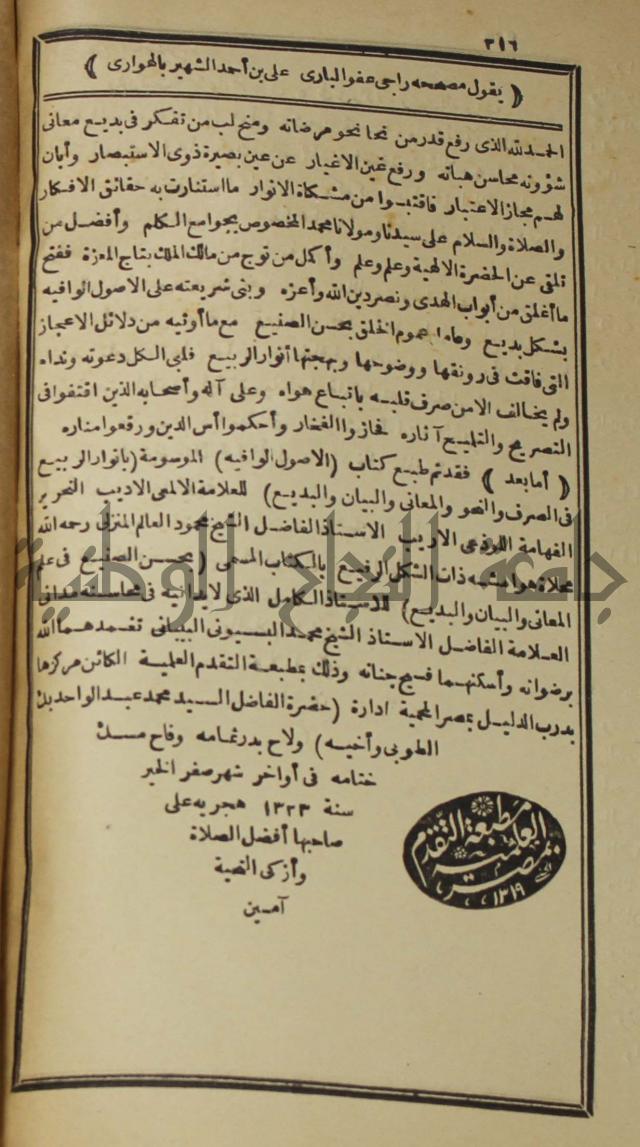 ٣١٦
﴿ يقول مصححه راجى عفو البارى على بن أحمد الشهير بالهوارى ﴾
الحمد لله الذى رفع قدر من نحا نحو مرضاته ومنح لب من تفكر فى بديع معانى
شؤنه محاسن هباته ورفع غين الاغيار عن عين بصيرة ذوى الاستبصار وأبان
لهم مجاز الاعتبار فاقتبسوا من مشكاة الانوار ما استنارت به حقائق الافكار
والصلاة والسلام على سيدنا ومولانا محمد المخصوص بجوامع الكلم وأفضل من
تلقى عن الحضرة الالهية وعلم وعلم وأكمل من توج من مالك الملك بتاج المعزة ففتح
ما أغلق من أبواب الهدى ونصر دين الله وأعزه وبنى شريعته على الاصول الوافيه
بشكل بديع عموم الخلق بحسن الصنيع مع ما أوتيه من دلائل الاعجاز
التى فاقت فى رونقها ووضوحها وبهجتها أنوار الربيع فلبى الكل دعوته ونداه
ولم يخالف الا من صرف قلبه باتباع هواه وعلى آله وأصحابه الذين اقتفوا فى
التصريح والتلميح آثاره فحازوا الفخار وأحكموا أس الدين ورفعوا مناره
﴿ أما بعد ﴾ فقد تم طبع كتاب (الاصول الوافيه) الموسومة (بانوار الربيع
فى الصرف والنحو والمعانى والبيان والبديع) للعلامة الالمعى الاديب النحرير
الفهامة اللوذعى الاريب الاستاذ الفاضل الشيخ محمود العالم المنزلى رحمه الله
محلاة هوامشه ذات الشكل الرفيع بالكتاب المسمى (بحسن الصنيع فى علم
المعانى والبيان والبديع) للاستاذ الكامل الذى لا يدانيه فى محاسنه مدانى
العلامة الفاضل الاستاذ الشيخ محمد البسيونى البيبانى تغمدهما الله
برضوانه وأسكنهما فسيح جنانه وذلك بمطبعة التقدم العلمية الكائن مركزها
بدرب الدليل بمصر المحمية ادارة (حضرة الفاضل السيد محمد عبد الواحد بك
الطوبى وأخيه) ولاح بدر تمامه وفاح مسك
ختامه فى أواخر شهر صفر الخير
سنة ١٣٢٣ هجريه على
صاحبها أفضل الصلاة
وأزكى التحية
آمين
مطبعة التقدم
العلمية
بمصر
١٣١٩
جامعة النجاح الوطنية